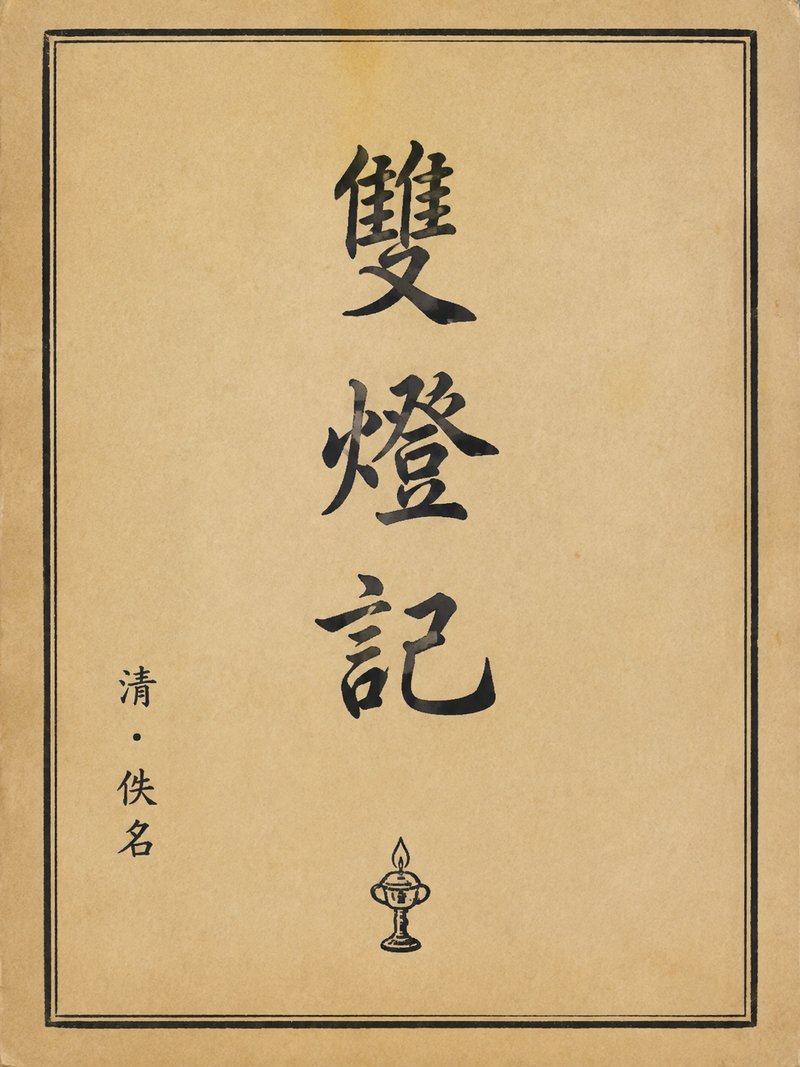 雙燈記
清・佚名